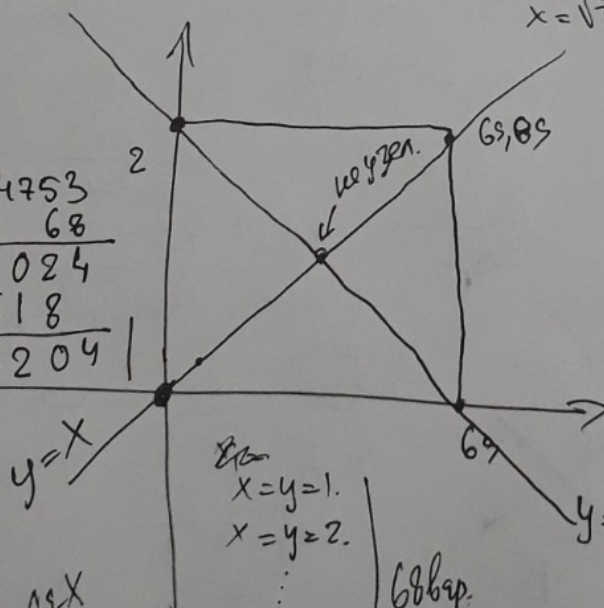 x = √
69,89
не узел.
2
4753
68
024
18
204
y=x
69
y=
x=y=1.
x=y=2.
⋮
68 вар.